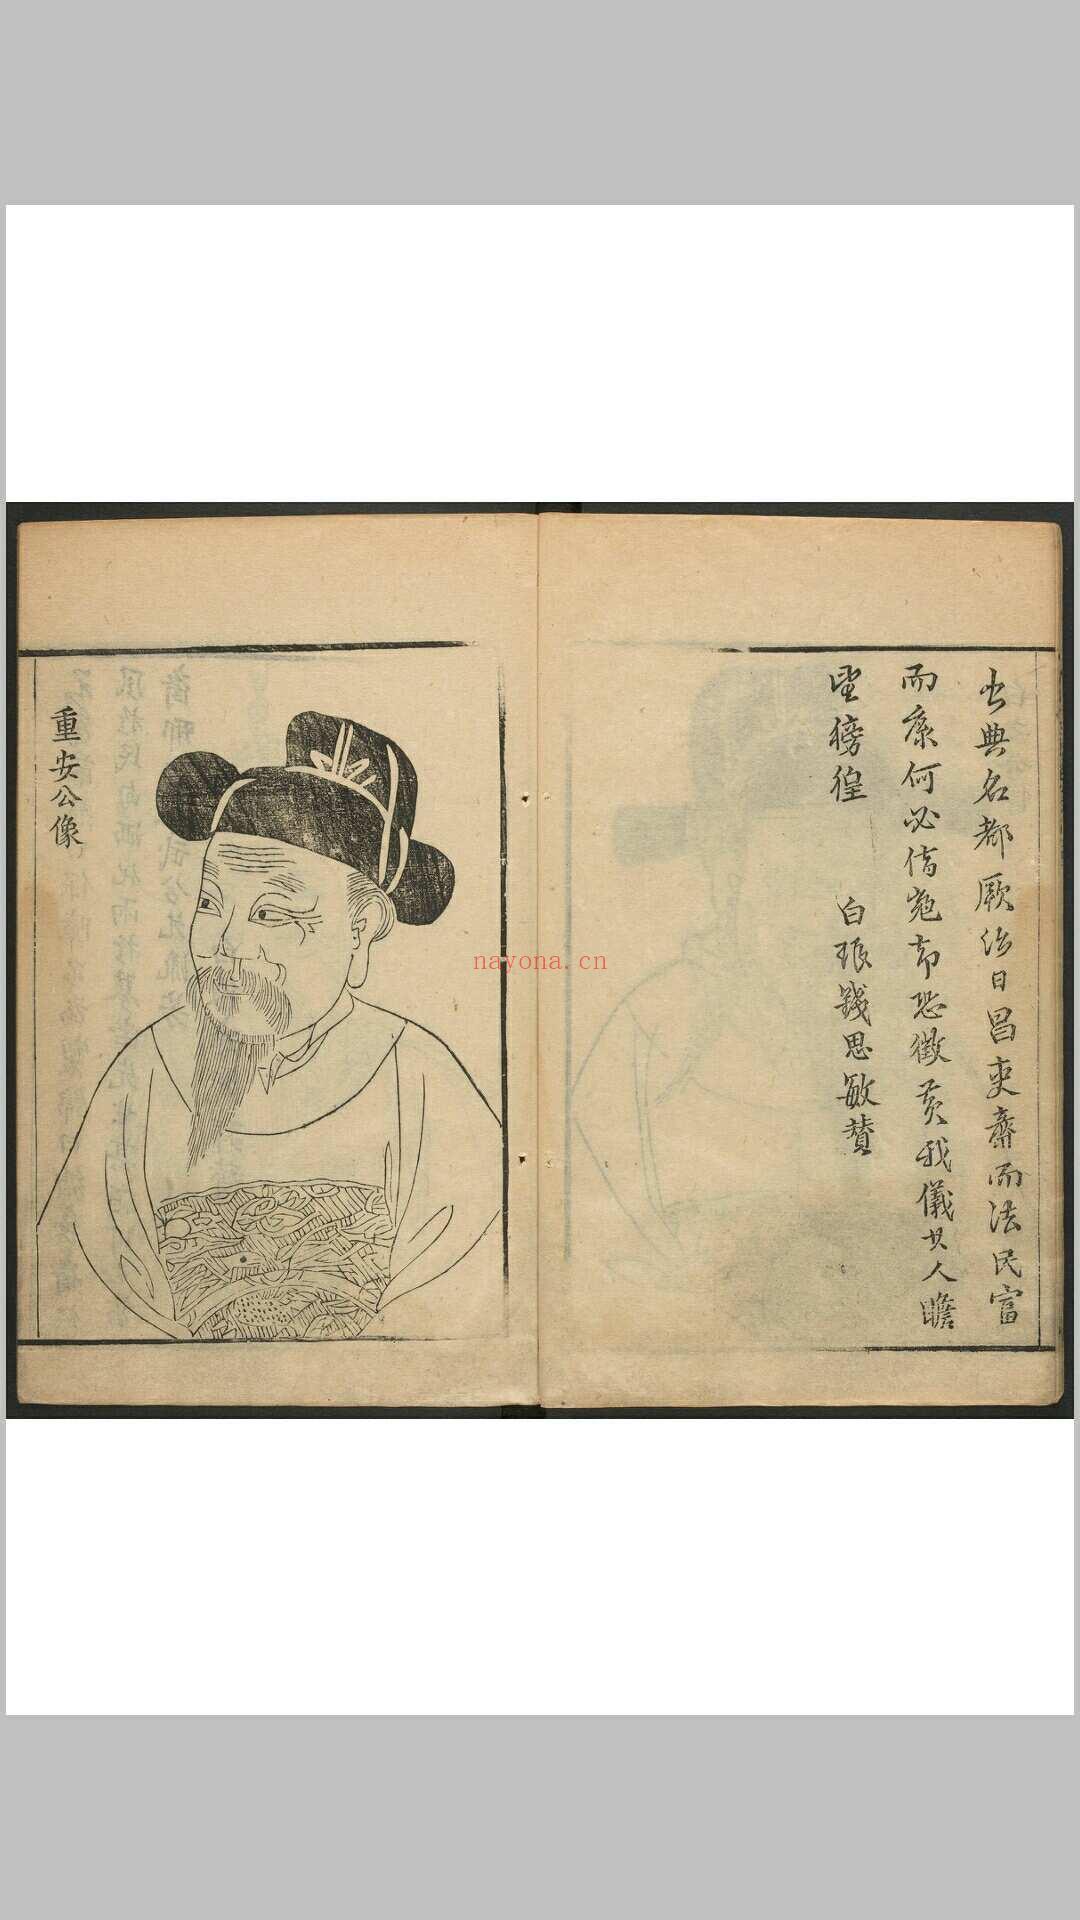 出典名都厥治日昌吏齋而法民富
而康何必借寇却恐徵黃我儀其人瞻
望徬徨
白琅錢思敏贊
重安公像
nayona.cn